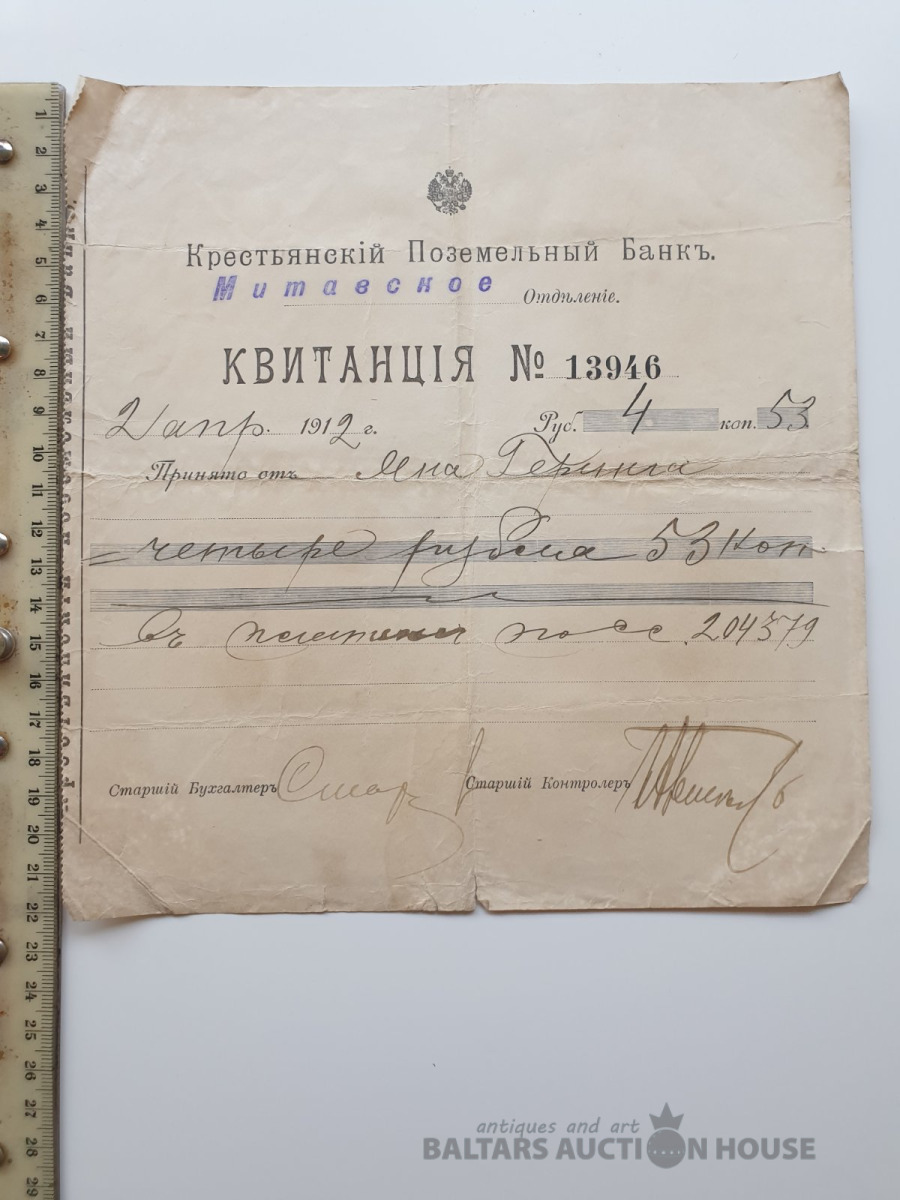 Крестьянскій Поземельный Банкъ.
Митавское Отдѣленіе.
КВИТАНЦІЯ № 13946
2 апр. 1912 г. Руб. 4 коп. 53
Принято отъ Яна Геринга
= четыре рубля 53 коп
въ платежи по сс. 204579
Старшій Бухгалтеръ Старшій Контролеръ
1 2 3 4 5 6 7 8 9 10 11 12 13 14 15 16 17 18 19 20 21 22 23 24 25 26 27 28 29
antiques and art
BALTARS AUCTION HOUSE